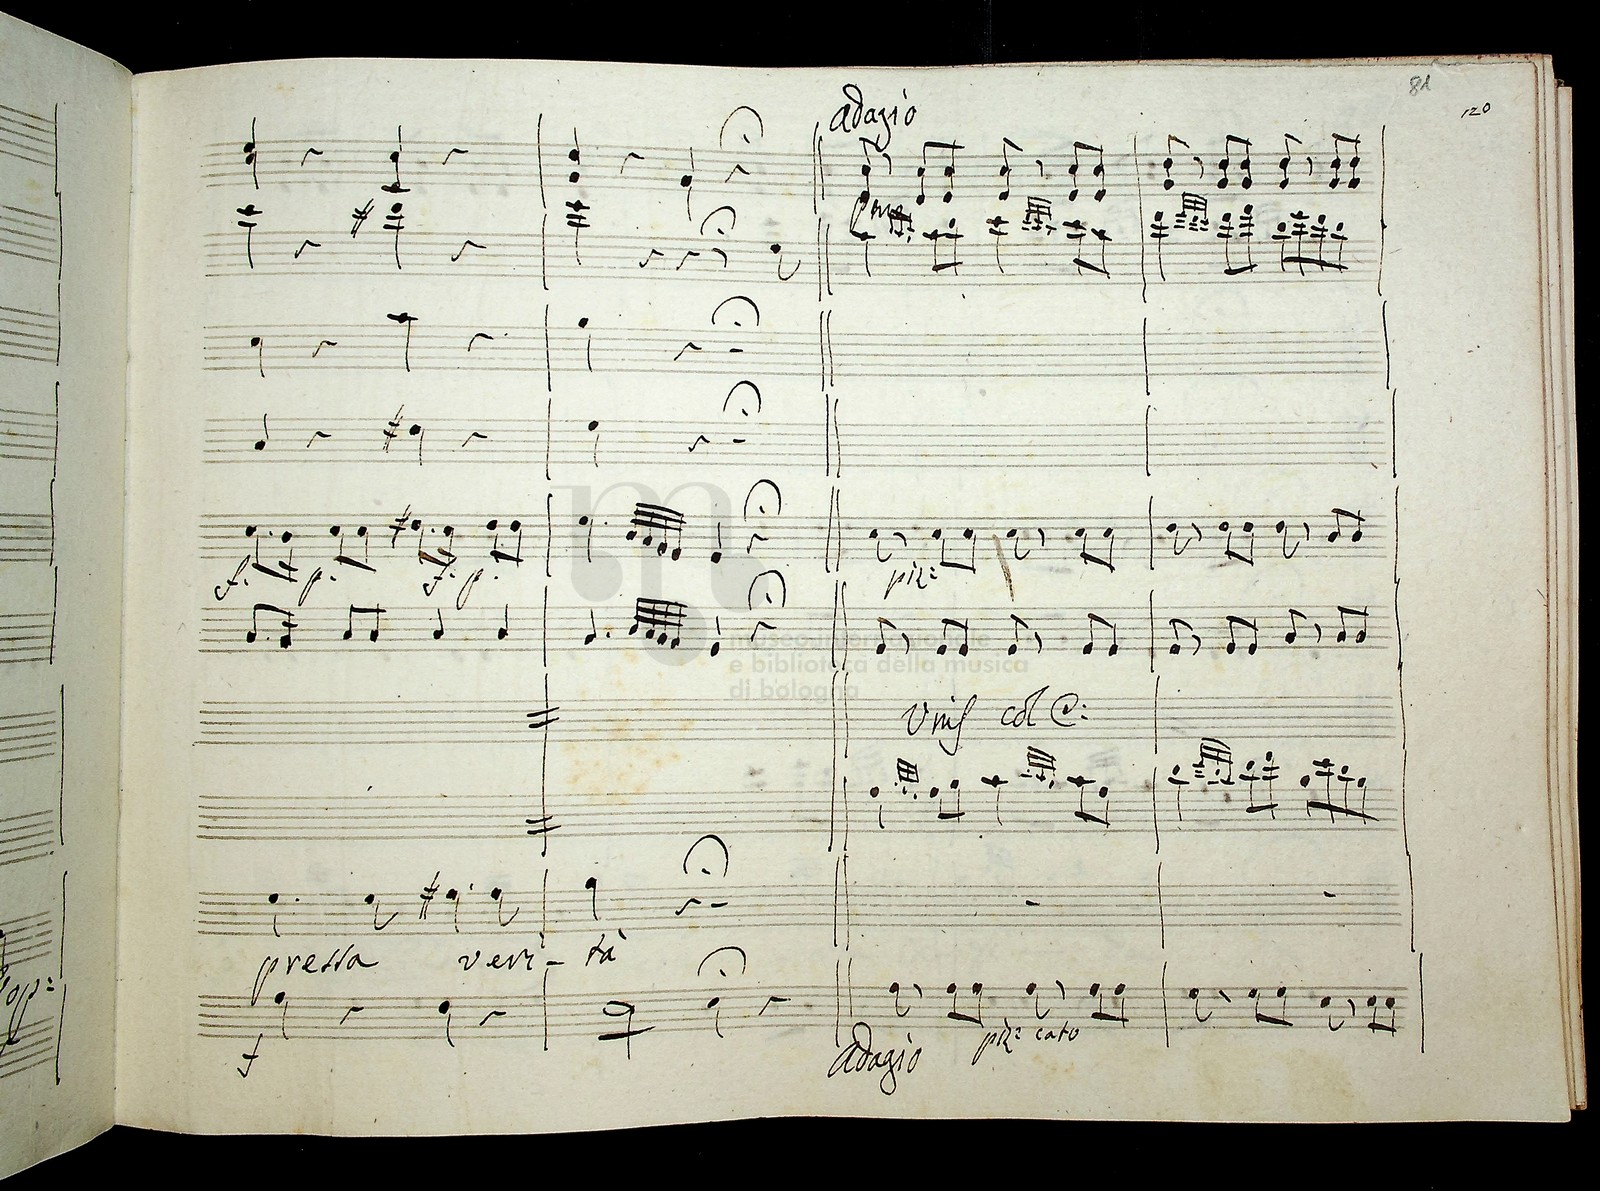 81
120
adagio
pmo
f. p. f. p.
piz:
museo internazionale
e biblioteca della musica
di bologna
Unis col
pressa veri- tà
op:
f
piz: cato
adagio